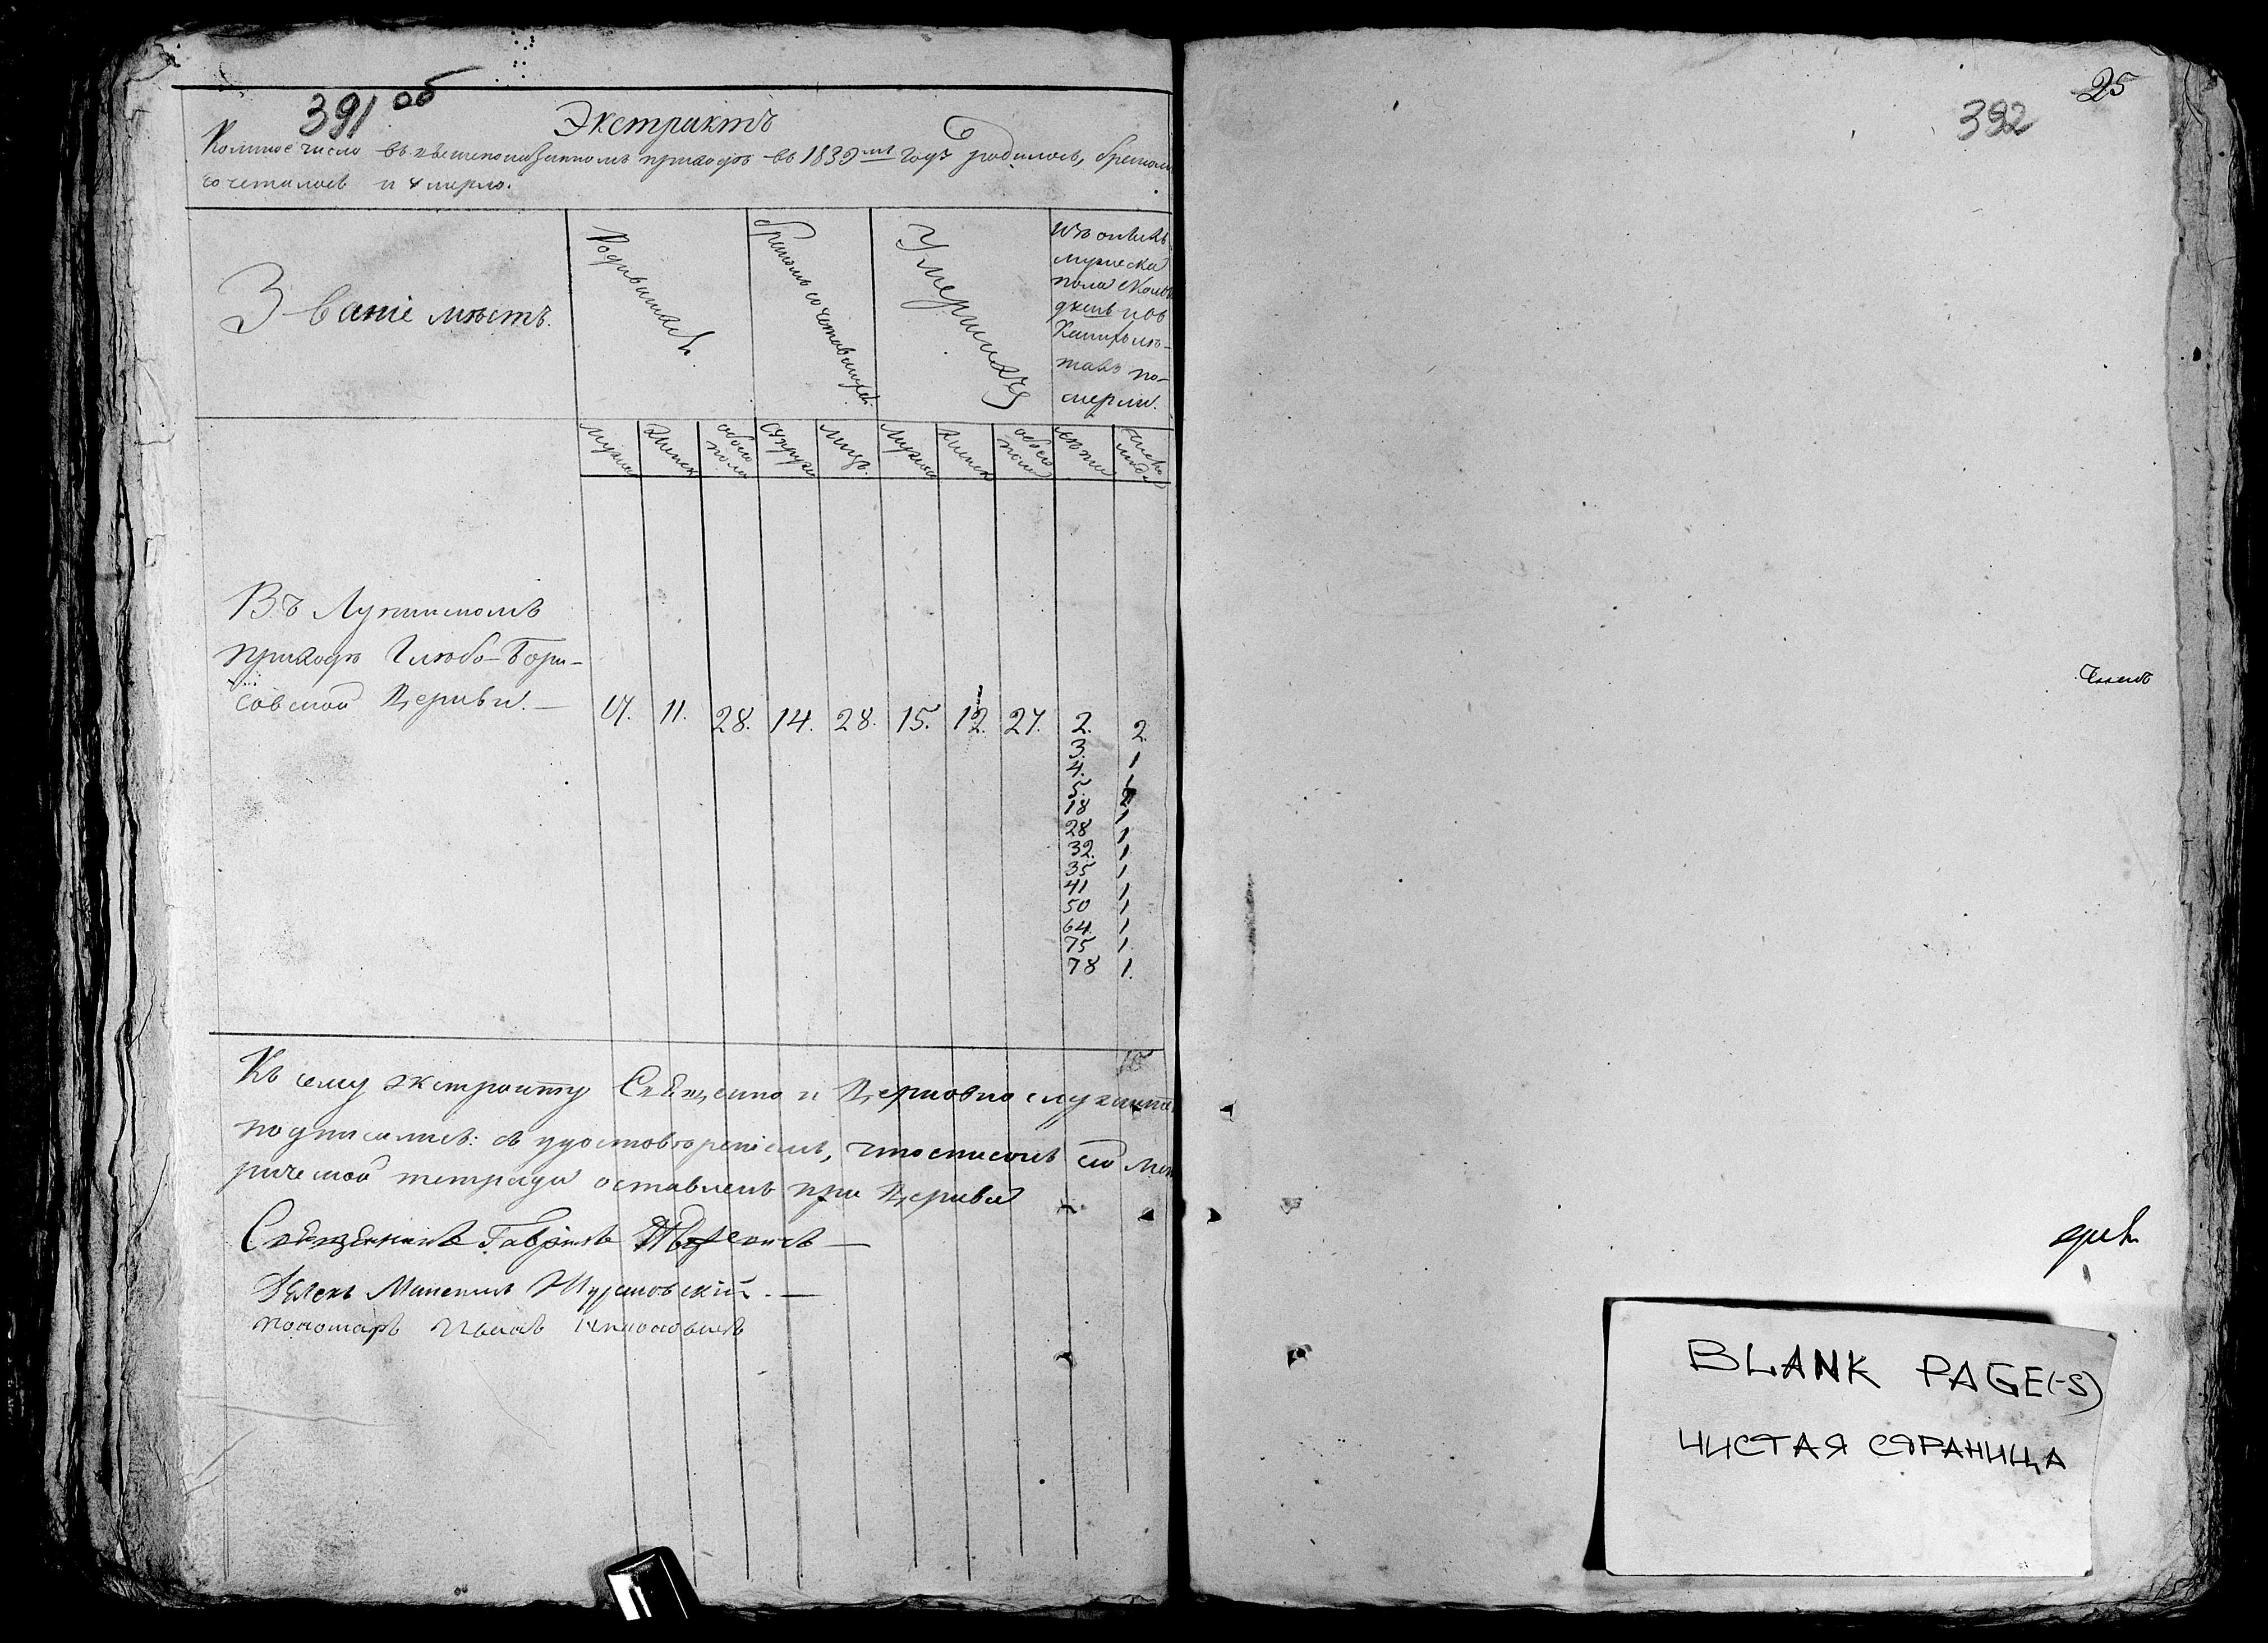 391 об
Экстрактъ
Коликое число въ вышеписанномъ приходѣ въ 1839мъ Году родилось, бракомъ
сочеталось и умерло.
Званіе мѣстъ.
Родившихся
бракомъ сочетавшихся
Умершихъ
изъ оныхъ
мужеска
пола сколько
Кихъ лѣ-
тахъ по-
мерли.
мужеска
Женск
обоего пола
Супруги
лицъ.
Мужеска
Женск
обоего пола
лѣты
число людей
Въ Лунинскомъ
приходѣ Глѣбо-Бори-
совской Церкви.—
17. 11. 28. 14. 28. 15. 12. 27. 2. 2.
3. 1
4. 1
5.
18 1
28 1
32. 1
35 1
41 1
50 1
64. 1
75 1.
78 1.
15
Къ сему экстракту Священно и Церковно служители
подписались: съ удостовѣреніемъ, что списокъ сей Мет
рической тетради оставленъ при Церкви
Священникъ Гавріилъ
Дьякъ Журавскій.—
пономарь
25
392
BLANK PAGE(-S)
ЧИСТАЯ СТРАНИЦА